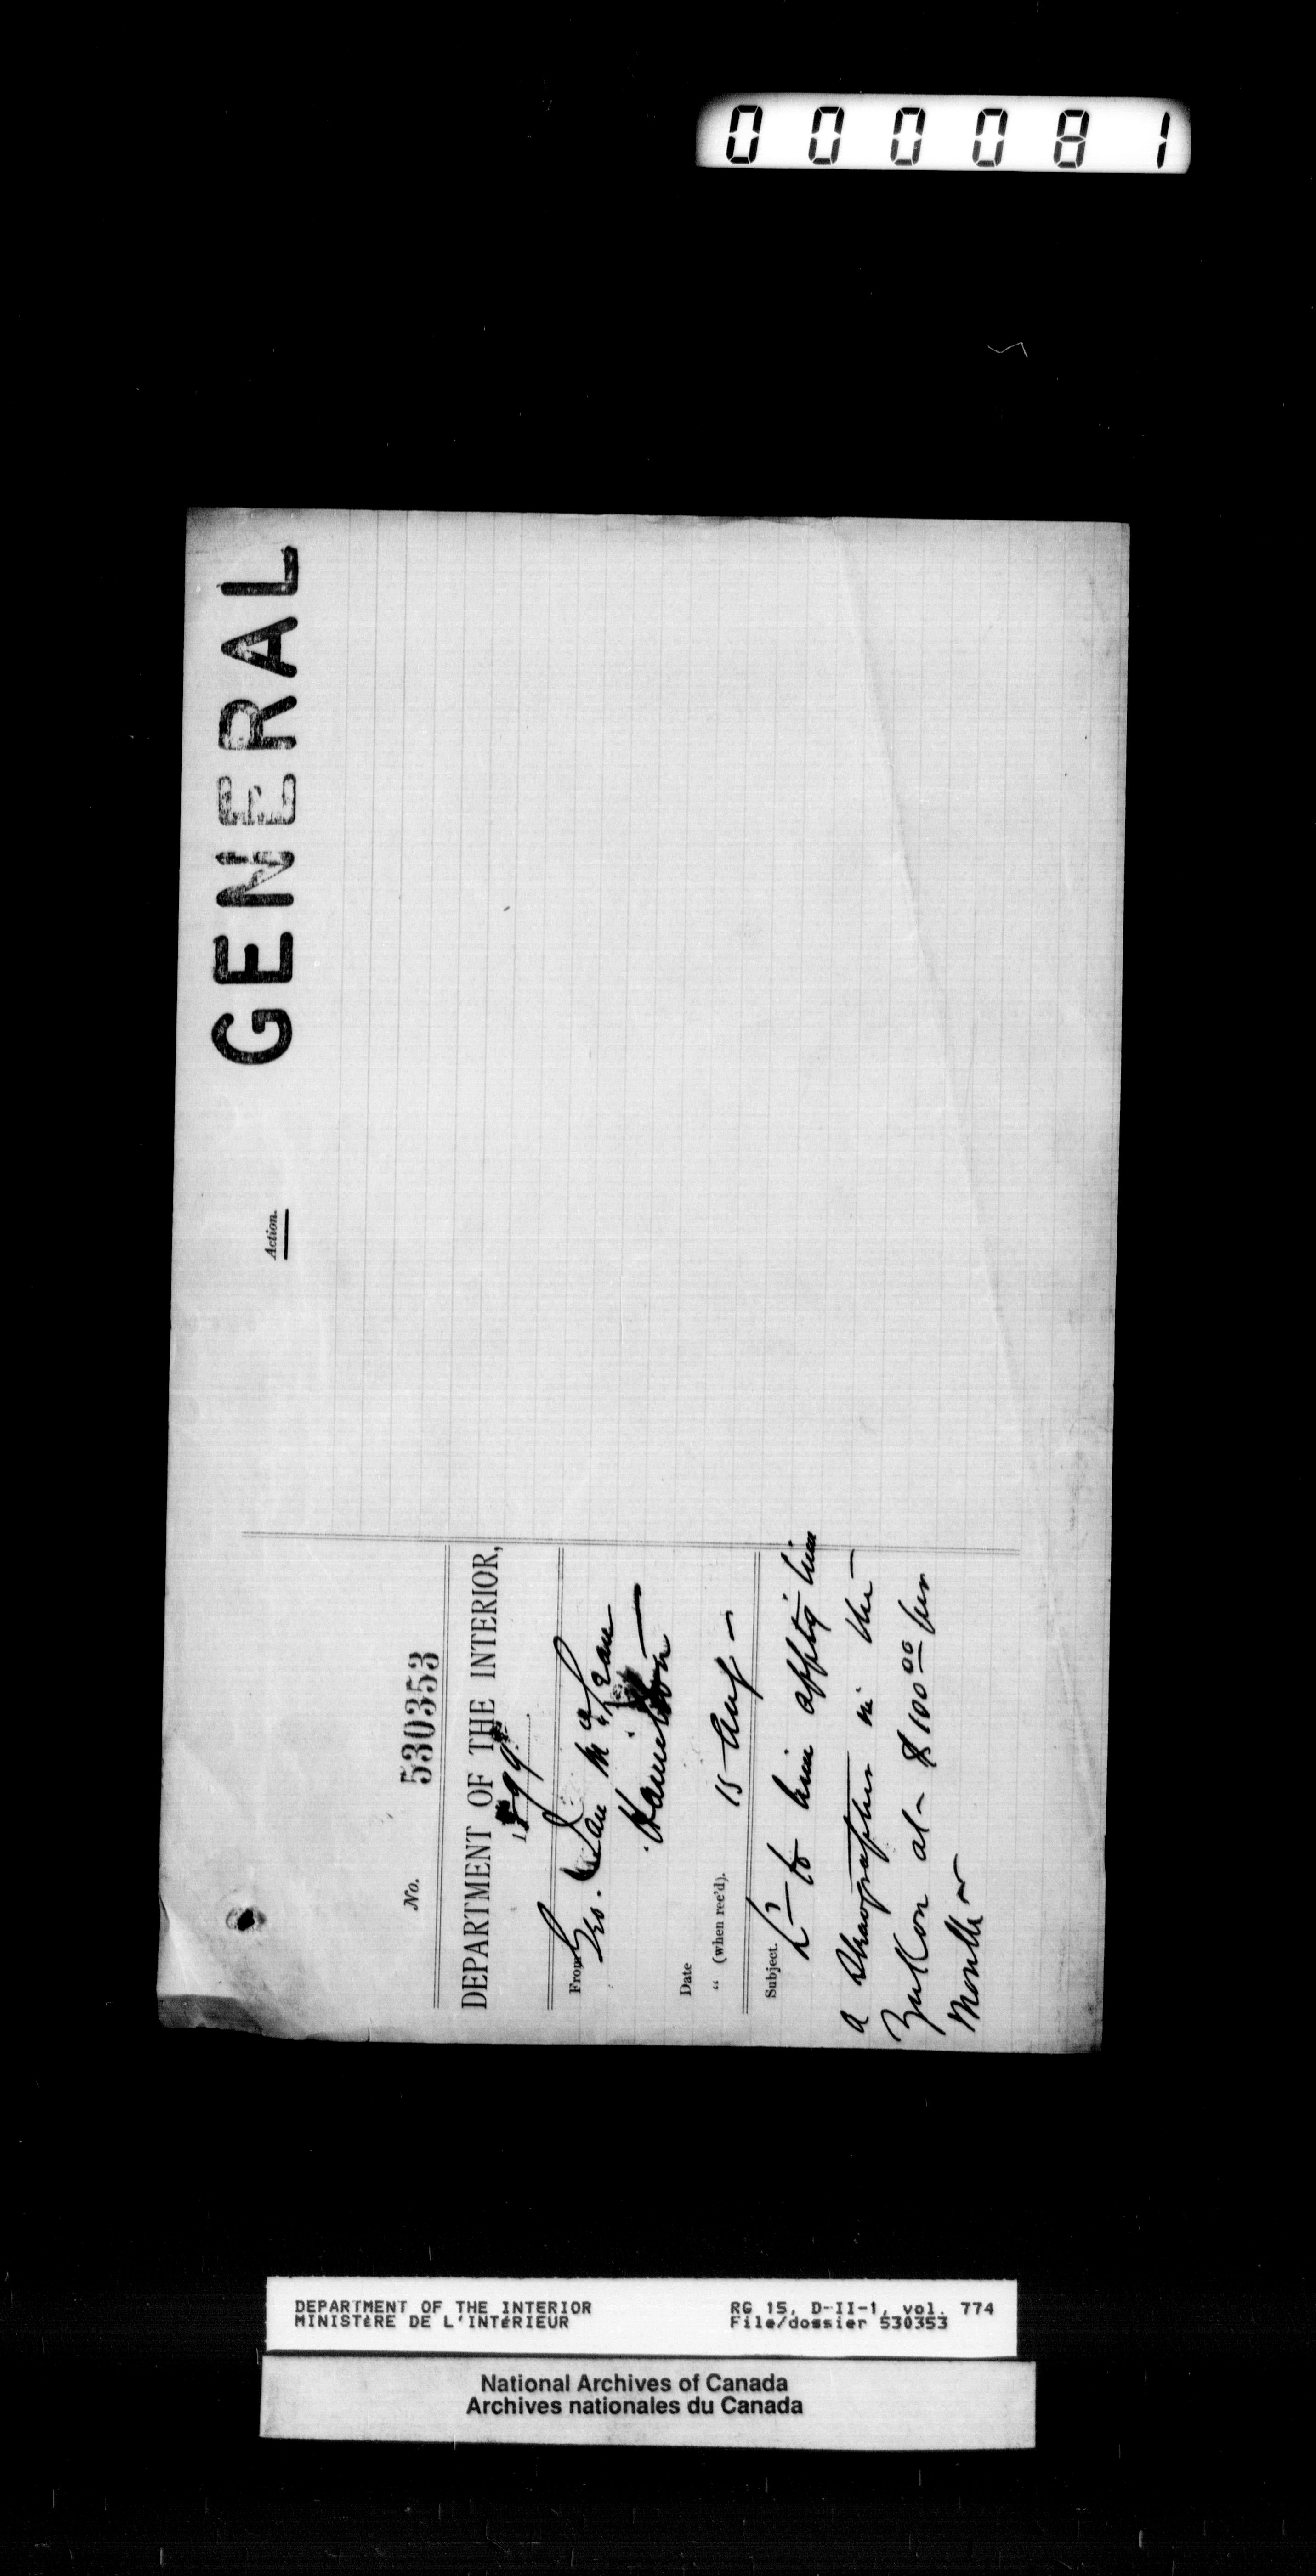 000081
GENERAL
Action.
No. 530353
DEPARTMENT OF THE INTERIOR,
1899
From Geo. Ian
Hamilton
Date
" (when rec'd). 15 Aug
Subject.
Lr to him apptg him
a Stenographer in the
Yukon at $100.00 per
Month
DEPARTMENT OF THE INTERIOR
MINISTÈRE DE L'INTÉRIEUR
RG 15, D-II-1, vol. 774
File/dossier 530353
National Archives of Canada
Archives nationales du Canada